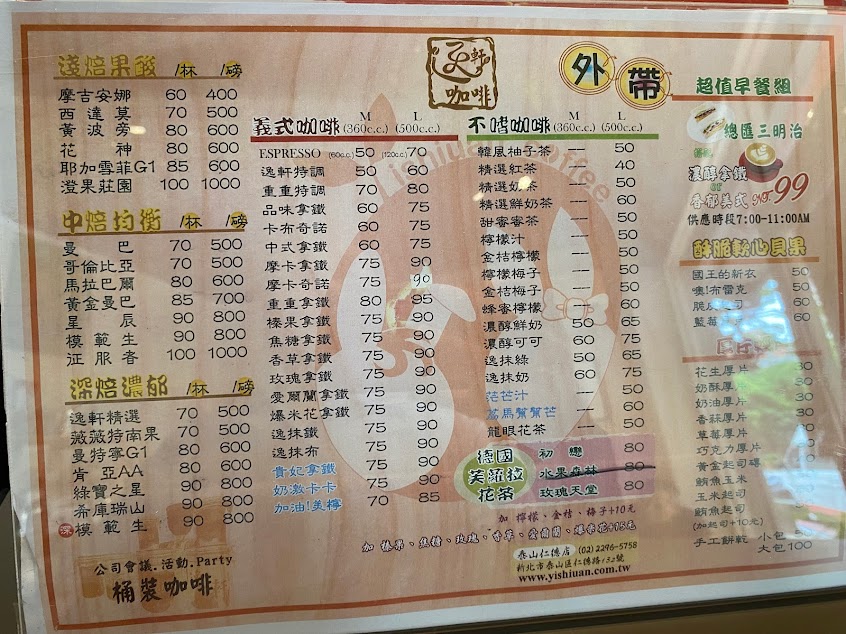 軒
咖啡
外帶
淺焙果酸 /杯 /磅
摩吉安娜 60 400
西達莫 70 500
黃波旁 80 600
花神 80 600
耶加雪菲G1 85 600
澄果莊園 100 1000
中焙均衡 /杯 /磅
曼巴 70 500
哥倫比亞 70 500
馬拉巴爾 80 600
黃金曼巴 85 700
星辰 90 800
模範生 90 800
征服者 100 1000
深焙濃郁 /杯 /磅
逸軒精選 70 500
藏藏特南果 70 500
曼特寧G1 80 600
肯亞AA 80 600
綠寶之星 90 800
希庫瑞山 90 800
深 模範生 90 800
公司會議.活動.Party
桶裝咖啡
義式咖啡 M (360c.c.) L (500c.c.)
ESPRESSO (60c.c.) 50 (120c.c.) 70
逸軒特調 50 60
重重特調 70 80
品味拿鐵 60 75
卡布奇諾 60 75
中式拿鐵 60 75
摩卡拿鐵 75 90
摩卡奇諾 75 90
重重拿鐵 80 95
榛果拿鐵 75 90
焦糖拿鐵 75 90
香草拿鐵 75 90
玫瑰拿鐵 75 90
愛爾蘭拿鐵 75 90
爆米花拿鐵 75 90
逸抹鐵 75 90
逸抹布 75 90
貴妃拿鐵 75 90
奶激卡卡 75 90
加油!美檸 70 85
不嗜咖啡 M (360c.c.) L (500c.c.)
韓風柚子茶 — 50
精選紅茶 — 40
精選奶茶 — 50
精選鮮奶茶 — 60
甜蜜蜜茶 — 50
檸檬汁 — 50
金桔檸檬 — 50
檸檬梅子 — 50
金桔梅子 — 50
蜂蜜檸檬 — 60
濃醇鮮奶 50 65
濃醇可可 60 75
逸抹綠 50 65
逸抹奶 60 75
茫芒汁 — 50
蔦馬贊贊芒 — 60
龍眼花茶 — 50
德國
芙蘿拉
花茶
初戀 80
水果森林 80
玫瑰天堂 80
加 檸檬、金桔、梅子+10元
加 榛果、焦糖、玫瑰、香草、愛爾蘭、爆米花+15元
泰山仁德店 (02) 2296-5758
新北市泰山區仁德路152號
www.yishiuan.com.tw
超值早餐組
總匯三明治
濃醇拿鐵
or
香郁美式 99
供應時段7:00-11:00AM
酥脆軟心貝果
國王的新衣 50
噢!布雷克 50
脆皮起司 60
藍莓 60
花生厚片 30
奶酥厚片 30
奶油厚片 30
香蒜厚片
草莓厚片
巧克力厚片
黃金起司磚
鮪魚玉米
玉米起司
鮪魚起司
(加起司+10元)
手工餅乾 小包 50
大包 100